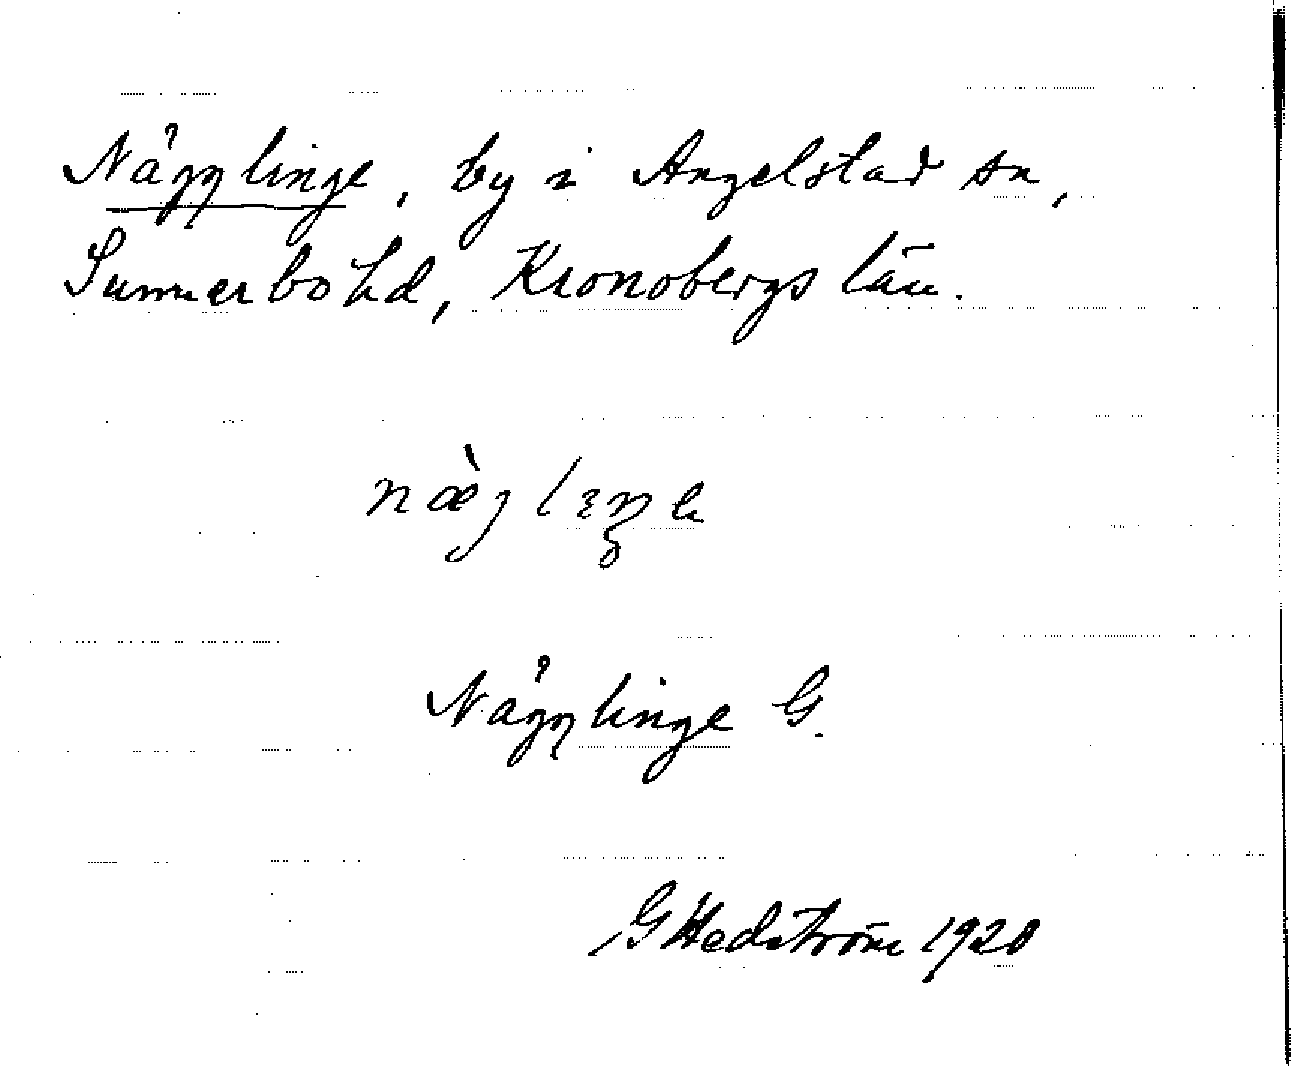 Någglinge, by i Angelstad sn,
Sunnerbo hd, Kronobergs län.
næ̀gleŋe
Någglinge G.
GHedström 1920